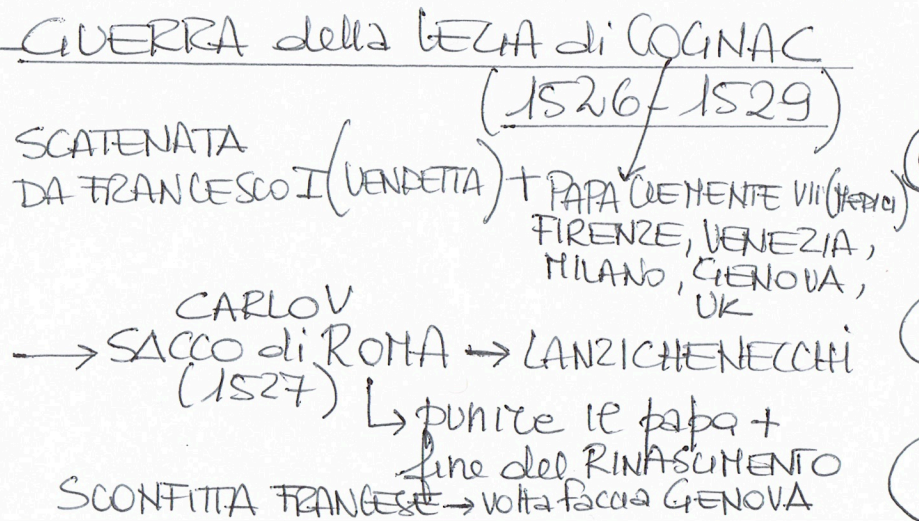 GUERRA della LEGA di COGNAC
(1526-1529)
SCATENATA
DA FRANCESCO I (VENDETTA) + PAPA CLEMENTE VII (MEDICI)
FIRENZE, VENEZIA,
MILANO, GENOVA,
UK
CARLO V
→ SACCO di ROMA → LANZICHENECCHI
(1527)
↳ punire il papa +
fine del RINASCIMENTO
SCONFITTA FRANCESE → volta faccia GENOVA